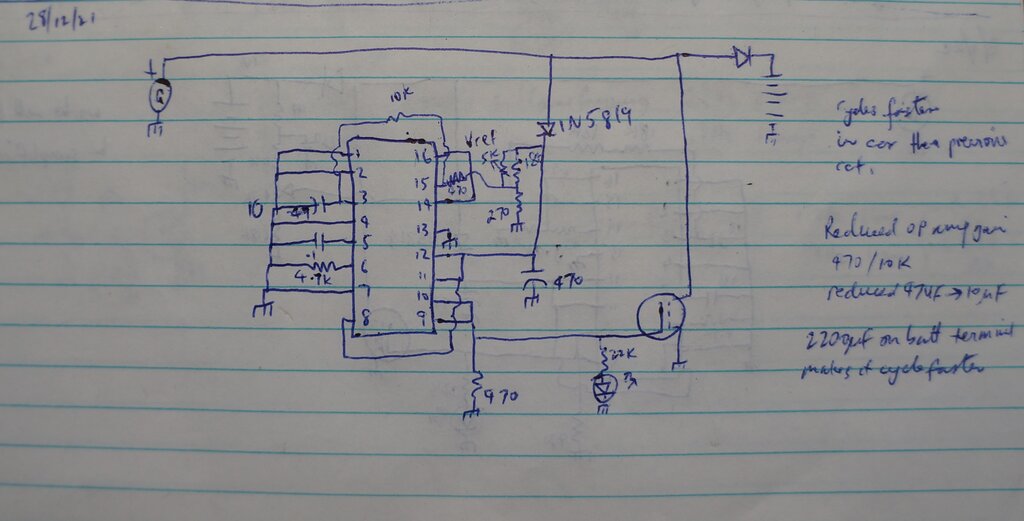 28/12/21
+
G
10K
Vref
1N5819
5K
18K
470
270
1
2
3
4
5
6
7
8
16
15
14
13
12
11
10
9
10
47
.1
4.7K
470
470
22K
Cycles faster
in car than previous
cct.
Reduced op amp gain
470/10K
reduced 47uF → 10uF
2200uf on batt terminal
makes it cycle faster